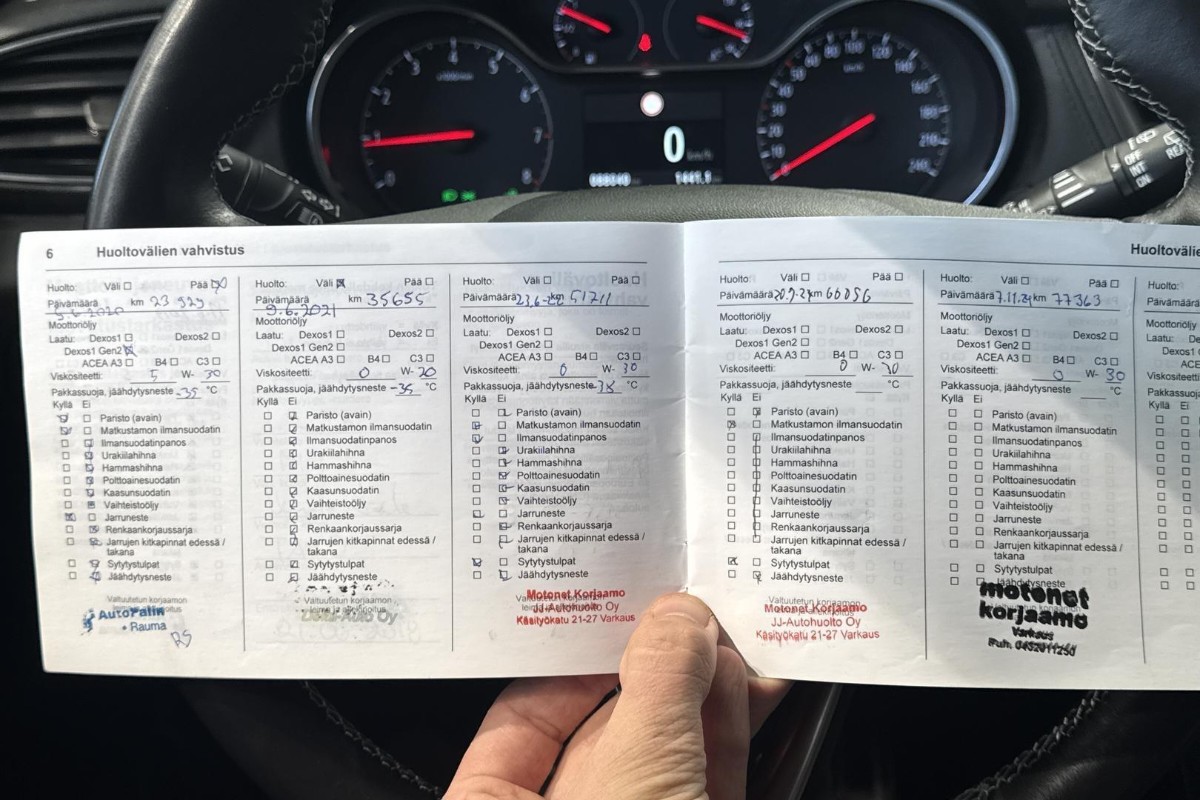 1 2 3 4 5 6 7 8
x1000/min
80 100 120 140 160 180 210 240
km/h
0 km/h
1441.1
OFF
INT
ON
REA
6 Huoltovälien vahvistus
Huolto: Väli Pää
Päivämäärä km 23 929
Moottoriöljy
Laatu: Dexos1 Dexos2
Dexos1 Gen2
ACEA A3 B4 C3
Viskositeetti: 5 W- 30
Pakkassuoja, jäähdytysneste -35 °C
Kyllä Ei
Paristo (avain)
Matkustamon ilmansuodatin
Ilmansuodatinpanos
Urakiilahihna
Hammashihna
Polttoainesuodatin
Kaasunsuodatin
Vaihteistoöljy
Jarruneste
Renkaankorjaussarja
Jarrujen kitkapinnat edessä /
takana
Sytytystulpat
Jäähdytysneste
Valtuutetun korjaamon
AutoPalin
• Rauma
RS
Huolto: Väli Pää
Päivämäärä km 35655
9.6.2021
Moottoriöljy
Laatu: Dexos1 Dexos2
Dexos1 Gen2
ACEA A3 B4 C3
Viskositeetti: 0 W- 20
Pakkassuoja, jäähdytysneste -35 °C
Kyllä Ei
Paristo (avain)
Matkustamon ilmansuodatin
Ilmansuodatinpanos
Urakiilahihna
Hammashihna
Polttoainesuodatin
Kaasunsuodatin
Vaihteistoöljy
Jarruneste
Renkaankorjaussarja
Jarrujen kitkapinnat edessä /
takana
Sytytystulpat
Jäähdytysneste
Valtuutetun korjaamon
Oy
Huolto: Väli Pää
Päivämäärä km 51711
Moottoriöljy
Laatu: Dexos1 Dexos2
Dexos1 Gen2
ACEA A3 B4 C3
Viskositeetti: 0 W- 30
Pakkassuoja, jäähdytysneste -38 °C
Kyllä Ei
Paristo (avain)
Matkustamon ilmansuodatin
Ilmansuodatinpanos
Urakiilahihna
Hammashihna
Polttoainesuodatin
Kaasunsuodatin
Vaihteistoöljy
Jarruneste
Renkaankorjaussarja
Jarrujen kitkapinnat edessä /
takana
Sytytystulpat
Jäähdytysneste
Motonet Korjaamo
JJ-Autohuolto Oy
Käsityökatu 21-27 Varkaus
Huoltovälie
Huolto: Väli Pää
Päivämäärä km 66056
Moottoriöljy
Laatu: Dexos1 Dexos2
Dexos1 Gen2
ACEA A3 B4 C3
Viskositeetti: 0 W- 30
Pakkassuoja, jäähdytysneste °C
Kyllä Ei
Paristo (avain)
Matkustamon ilmansuodatin
Ilmansuodatinpanos
Urakiilahihna
Hammashihna
Polttoainesuodatin
Kaasunsuodatin
Vaihteistoöljy
Jarruneste
Renkaankorjaussarja
Jarrujen kitkapinnat edessä /
takana
Sytytystulpat
Jäähdytysneste
Motonet Korjaamo
JJ-Autohuolto Oy
Käsityökatu 21-27 Varkaus
Huolto: Väli Pää
Päivämäärä 7.11.24 km 77363
Moottoriöljy
Laatu: Dexos1 Dexos2
Dexos1 Gen2
ACEA A3 B4 C3
Viskositeetti: 0 W- 30
Pakkassuoja, jäähdytysneste °C
Kyllä Ei
Paristo (avain)
Matkustamon ilmansuodatin
Ilmansuodatinpanos
Urakiilahihna
Hammashihna
Polttoainesuodatin
Kaasunsuodatin
Vaihteistoöljy
Jarruneste
Renkaankorjaussarja
Jarrujen kitkapinnat edessä /
takana
Sytytystulpat
Jäähdytysneste
motonet
korjaamo
Varkaus
Puh. 0452011250
Huolto:
Päivämäärä
Moottoriöljy
Laatu: Dexo
Dexos1
ACE
Viskositeetti:
Pakkassuoja,
Kyllä Ei